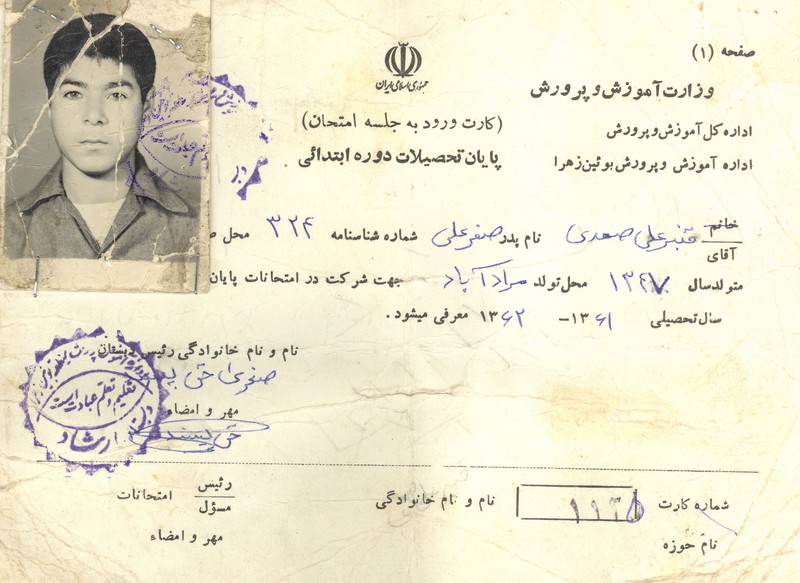 صفحه (۱)
جمهوری اسلامی ایران
وزارت آموزش و پرورش
(کارت ورود به جلسه امتحان)
اداره کل آموزش و پرورش
پایان تحصیلات دوره ابتدائی
اداره آموزش و پرورش بوئین زهرا
خانم
آقای
قنبرعلی صعدی نام پدر صفرعلی شماره شناسنامه ۳۲۴ محل
متولد سال ۱۳۴۷ محل تولد مرادآباد جهت شرکت در امتحانات پایان
سال تحصیلی ۱۳۶۱ - ۱۳۶۲ معرفی میشود.
نام و نام خانوادگی رئیس دبستان
صفری
مهر و امضاء
تعلیم و تعلم عبادت است
ارشاد
رئیس
مسؤل
امتحانات
نام و نام خانوادگی
شماره کارت ۱۱۳۵
مهر و امضاء
نام حوزه